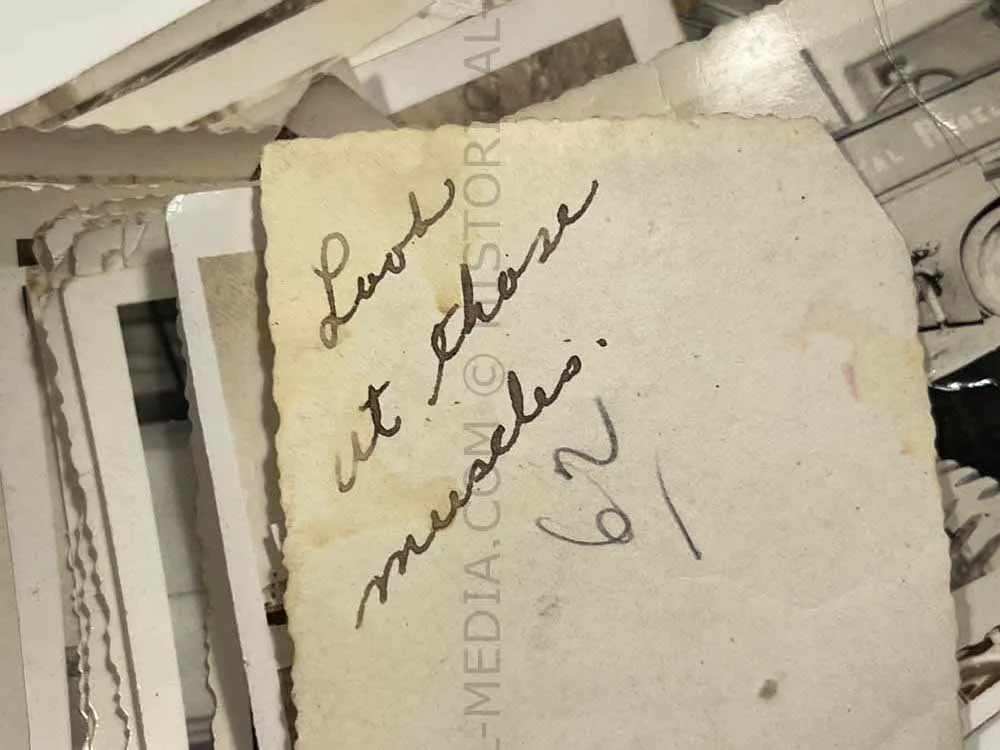 Look
at those
muscles.
62
L-MEDIA.COM © HISTORICAL